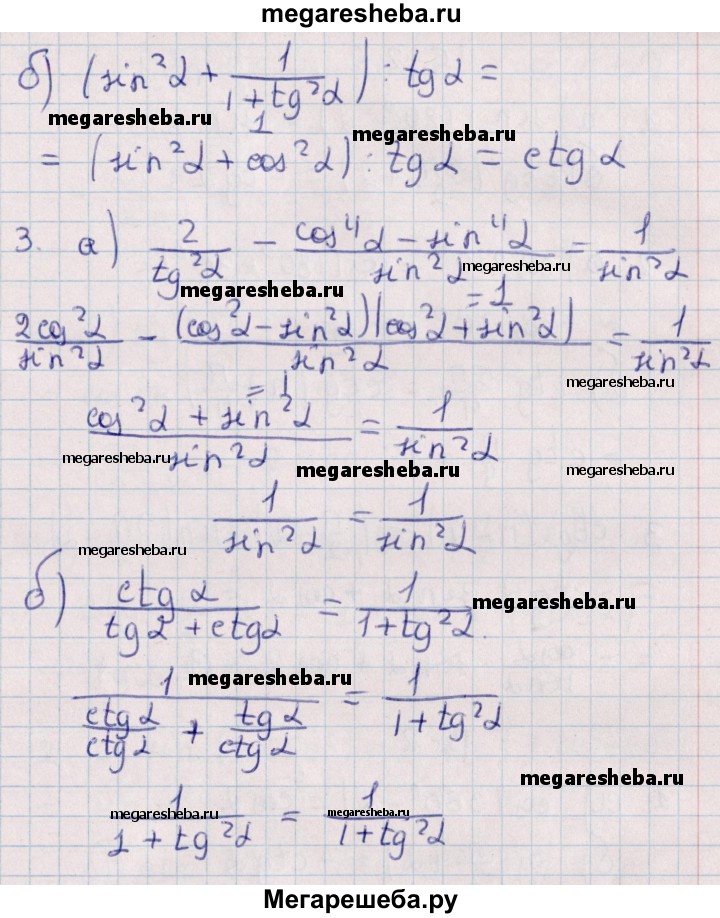 megaresheba.ru
б) (sin²α + 1/(1 + tg²α)) : tg α =
megaresheba.ru
1
megaresheba.ru
= (sin²α + cos²α) : tg α = ctg α
3. а) 2/tg²α − (cos⁴α − sin⁴α)/sin²α = 1/sin²α
megaresheba.ru
megaresheba.ru
= 1
2cos²α/sin²α − (cos²α − sin²α)(cos²α + sin²α)/sin²α = 1/sin²α
megaresheba.ru
= 1
(cos²α + sin²α)/sin²α = 1/sin²α
megaresheba.ru
megaresheba.ru
1/sin²α = 1/sin²α
megaresheba.ru
б) ctg α/(tg α + ctg α) = 1/(1 + tg²α).
megaresheba.ru
megaresheba.ru
1/(ctg α/ctg α + tg α/ctg α) = 1/(1 + tg²α)
megaresheba.ru
1/(1 + tg²α) = 1/(1 + tg²α)
megaresheba.ru
megaresheba.ru
Мегарешеба.ру